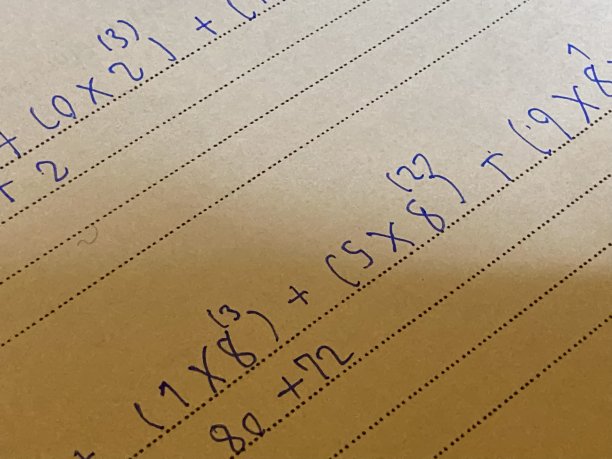 + (0 × 2⁽³⁾) + (
+ 2
+ (1 × 8⁽³⁾) + (5 × 8⁽²⁾) + (9 × 8¹
80 + 72